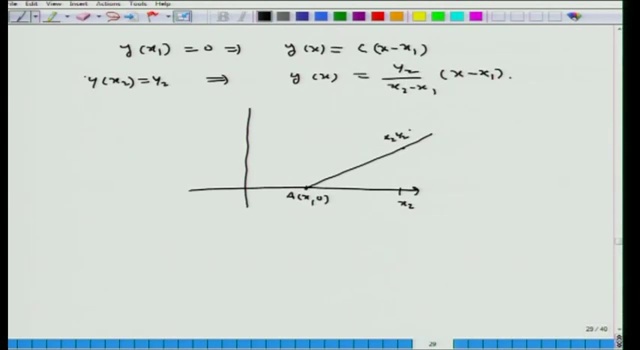 View Insert Actions Tools Help
y(x₁) = 0 ⇒ y(x) = C(x-x₁)
y(x₂) = y₂ ⇒ y(x) = y₂/(x₂-x₁) (x-x₁).
x₂ y₂
A(x₁, 0)
x₂
29 / 40
29